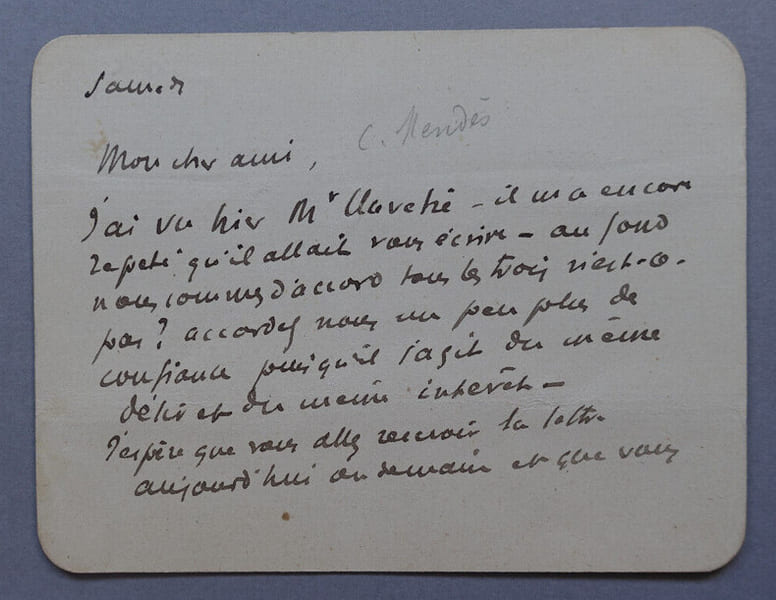 Samedi
C. Mendès
Mon cher ami,
J'ai vu hier Mr Claretie – il m'a encore
repeté qu'il allait vous écrire – au fond
nous sommes d'accord tous les trois n'est-ce-
pas? accordez nous un peu plus de
confiance puisqu'il s'agit du même
désir et du même interêt –
J'espère que vous allez recevoir sa lettre
aujourd'hui ou demain et que vous